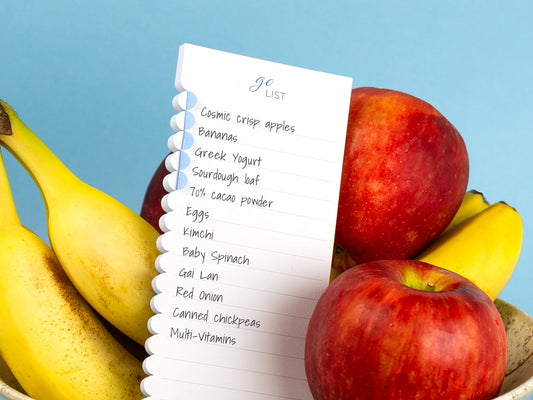 go
LIST
Cosmic crisp apples
Bananas
Greek Yogurt
Sourdough loaf
70% cacao powder
Eggs
Kimchi
Baby Spinach
Gai Lan
Red Onion
Canned chickpeas
Multi-Vitamins